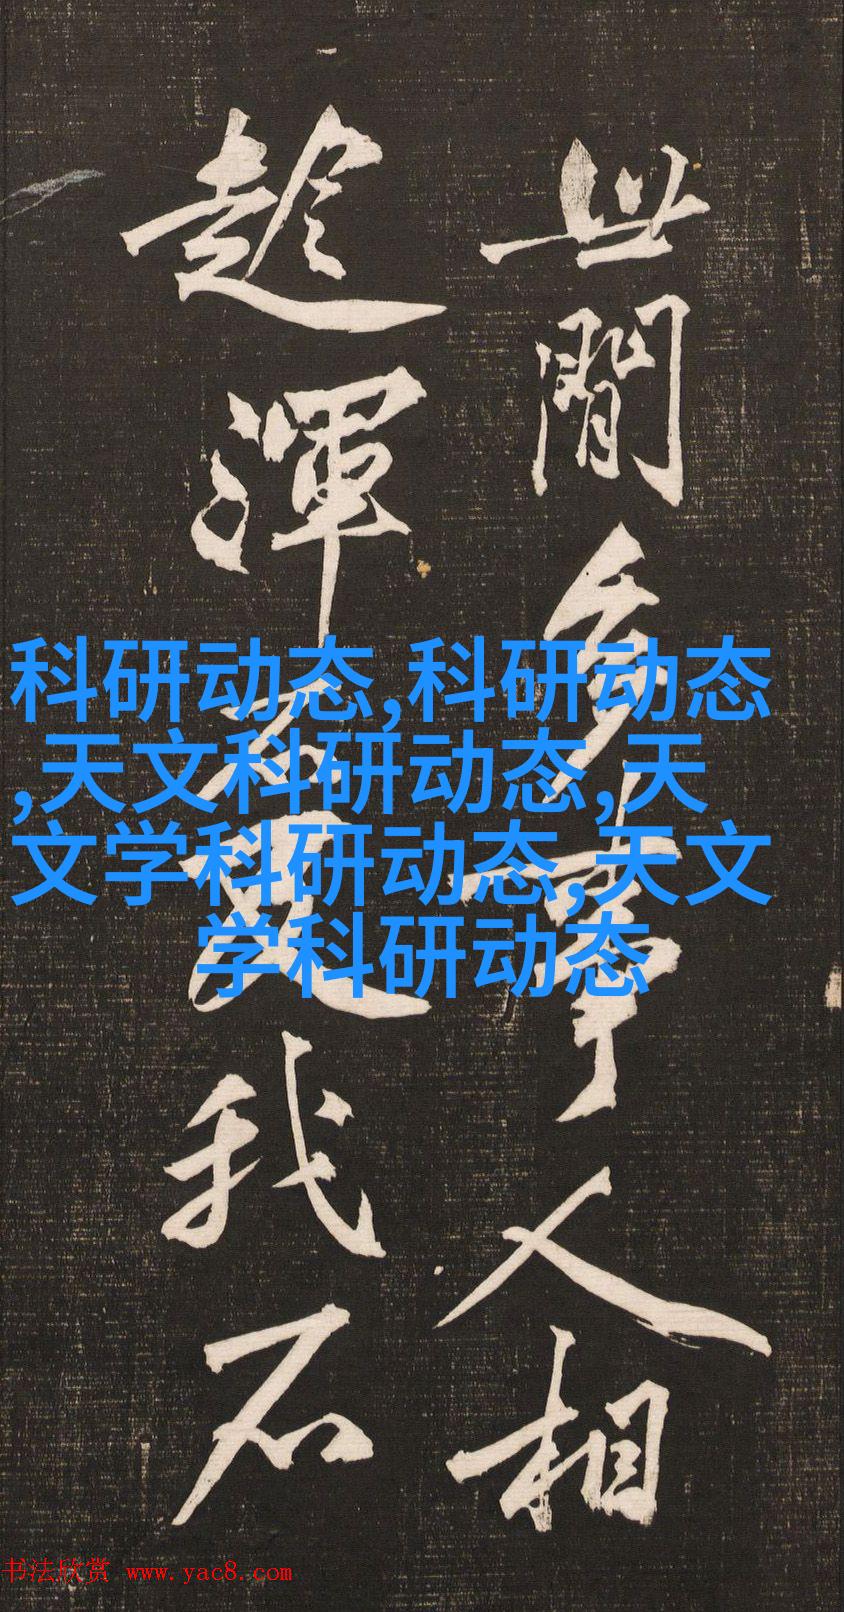 世間多事人相
趂渾我
科研动态,科研动态
,天文科研动态,天
文学科研动态,天文
学科研动态
书法欣赏 www.yac8.com